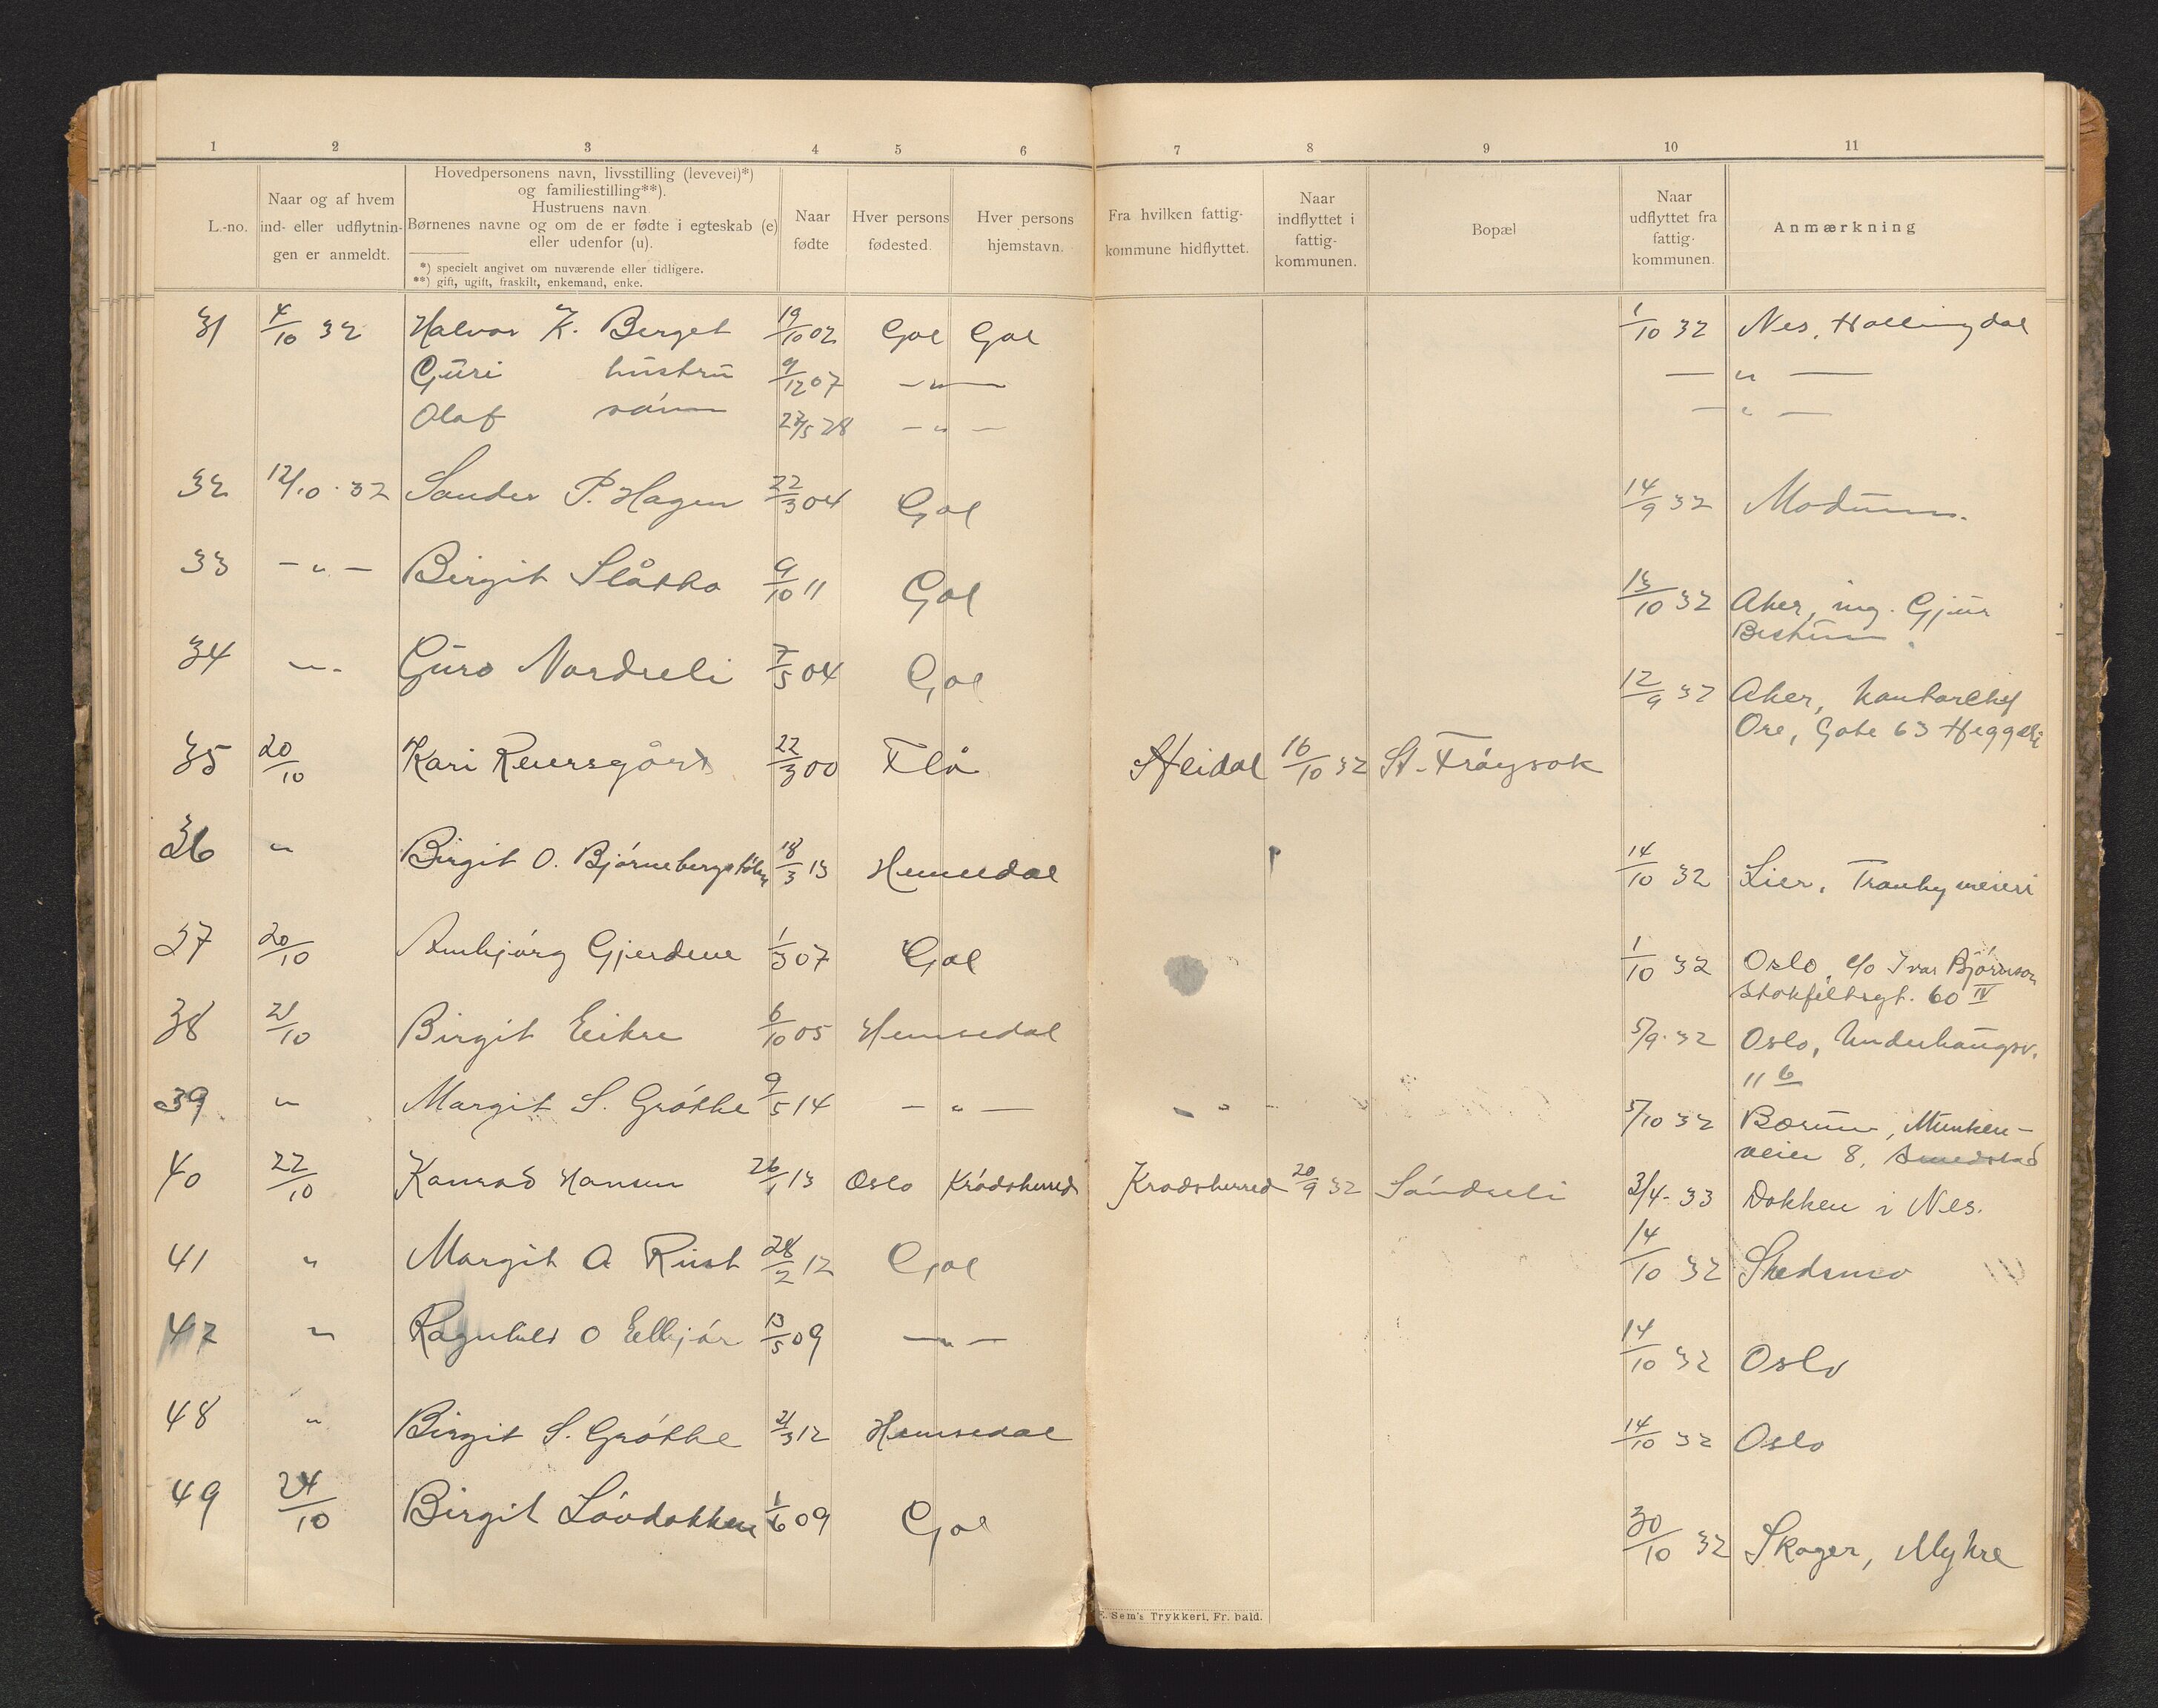 1 2 3 4 5 6 7 8 9 10 11
L.-no.
Naar og af hvem
ind- eller udflytnin-
gen er anmeldt.
Hovedpersonens navn, livsstilling (levevei)*)
og familiestilling**).
Hustruens navn.
Børnenes navne og om de er fødte i egteskab (e)
eller udenfor (u).
*) specielt angivet om nuværende eller tidligere.
**) gift, ugift, fraskilt, enkemand, enke.
Naar
fødte
Hver persons
fødested.
Hver persons
hjemstavn.
Fra hvilken fattig-
kommune hidflyttet.
Naar
indflyttet i
fattig-
kommunen.
Bopæl
Naar
udflyttet fra
fattig-
kommunen.
Anmærkning
31 4/10 32 Halvor K. Berget 19/10 02 Gol Gol 1/10 32 Nes, Hallingdal
Guri hustru 9/12 07 — " — — " —
Olaf sønn 27/5 28 — " — — " —
32 12/10 · 32 Sander P. Hagen 22/3 04 Gol 14/9 32 Modum.
33 — " — Birgit Slåtto 9/10 11 Gol 13/10 32 Aker, ing. Gjør
Bestum
34 — " — Guro Nordreli 7/5 04 Gol 12/9 32 Aker, kontorchef
Ore, Gate 63 Heggeli
35 20/10 Kari Reiersgård 22/3 00 Flå Heidal 16/10 32 St. Frøysok
36 " Birgit O. Bjørnebergstølen 18/3 13 Hemsedal 14/10 32 Lier, Tranby meieri
37 20/10 Ambjørg Gjerdene 1/3 07 Gol 1/10 32 Oslo, c/o Ivar Bjørnson
Stokfeltsgt. 60 IV
38 21/10 Birgit Eikre 6/10 05 Hemsedal 5/9 · 32 Oslo, Underhaugsv.
11 b
39 " Margit S. Grøthe 9/5 14 — " — — " — 5/10 32 Bærum, Munken-
veien 8,
40 22/10 Konrad Hansen 26/1 13 Oslo Krødsherred Krødsherred 20/9 32 Søndreli 3/4 · 33 Dokken i Nes.
41 " Margit O Rust 28/2 12 Gol 14/10 32 Skedsmo
47 " Ragnhild O Eltjør 13/5 09 — " — 14/10 32 Oslo
48 " Birgit S. Grøthe 21/3 12 Hemsedal 14/10 32 Oslo
49 24/10 Birgit Løvdokken 1/6 09 Gol 30/10 32 Skoger, Myhre
E. Sem's Trykkeri, Fr. hald.